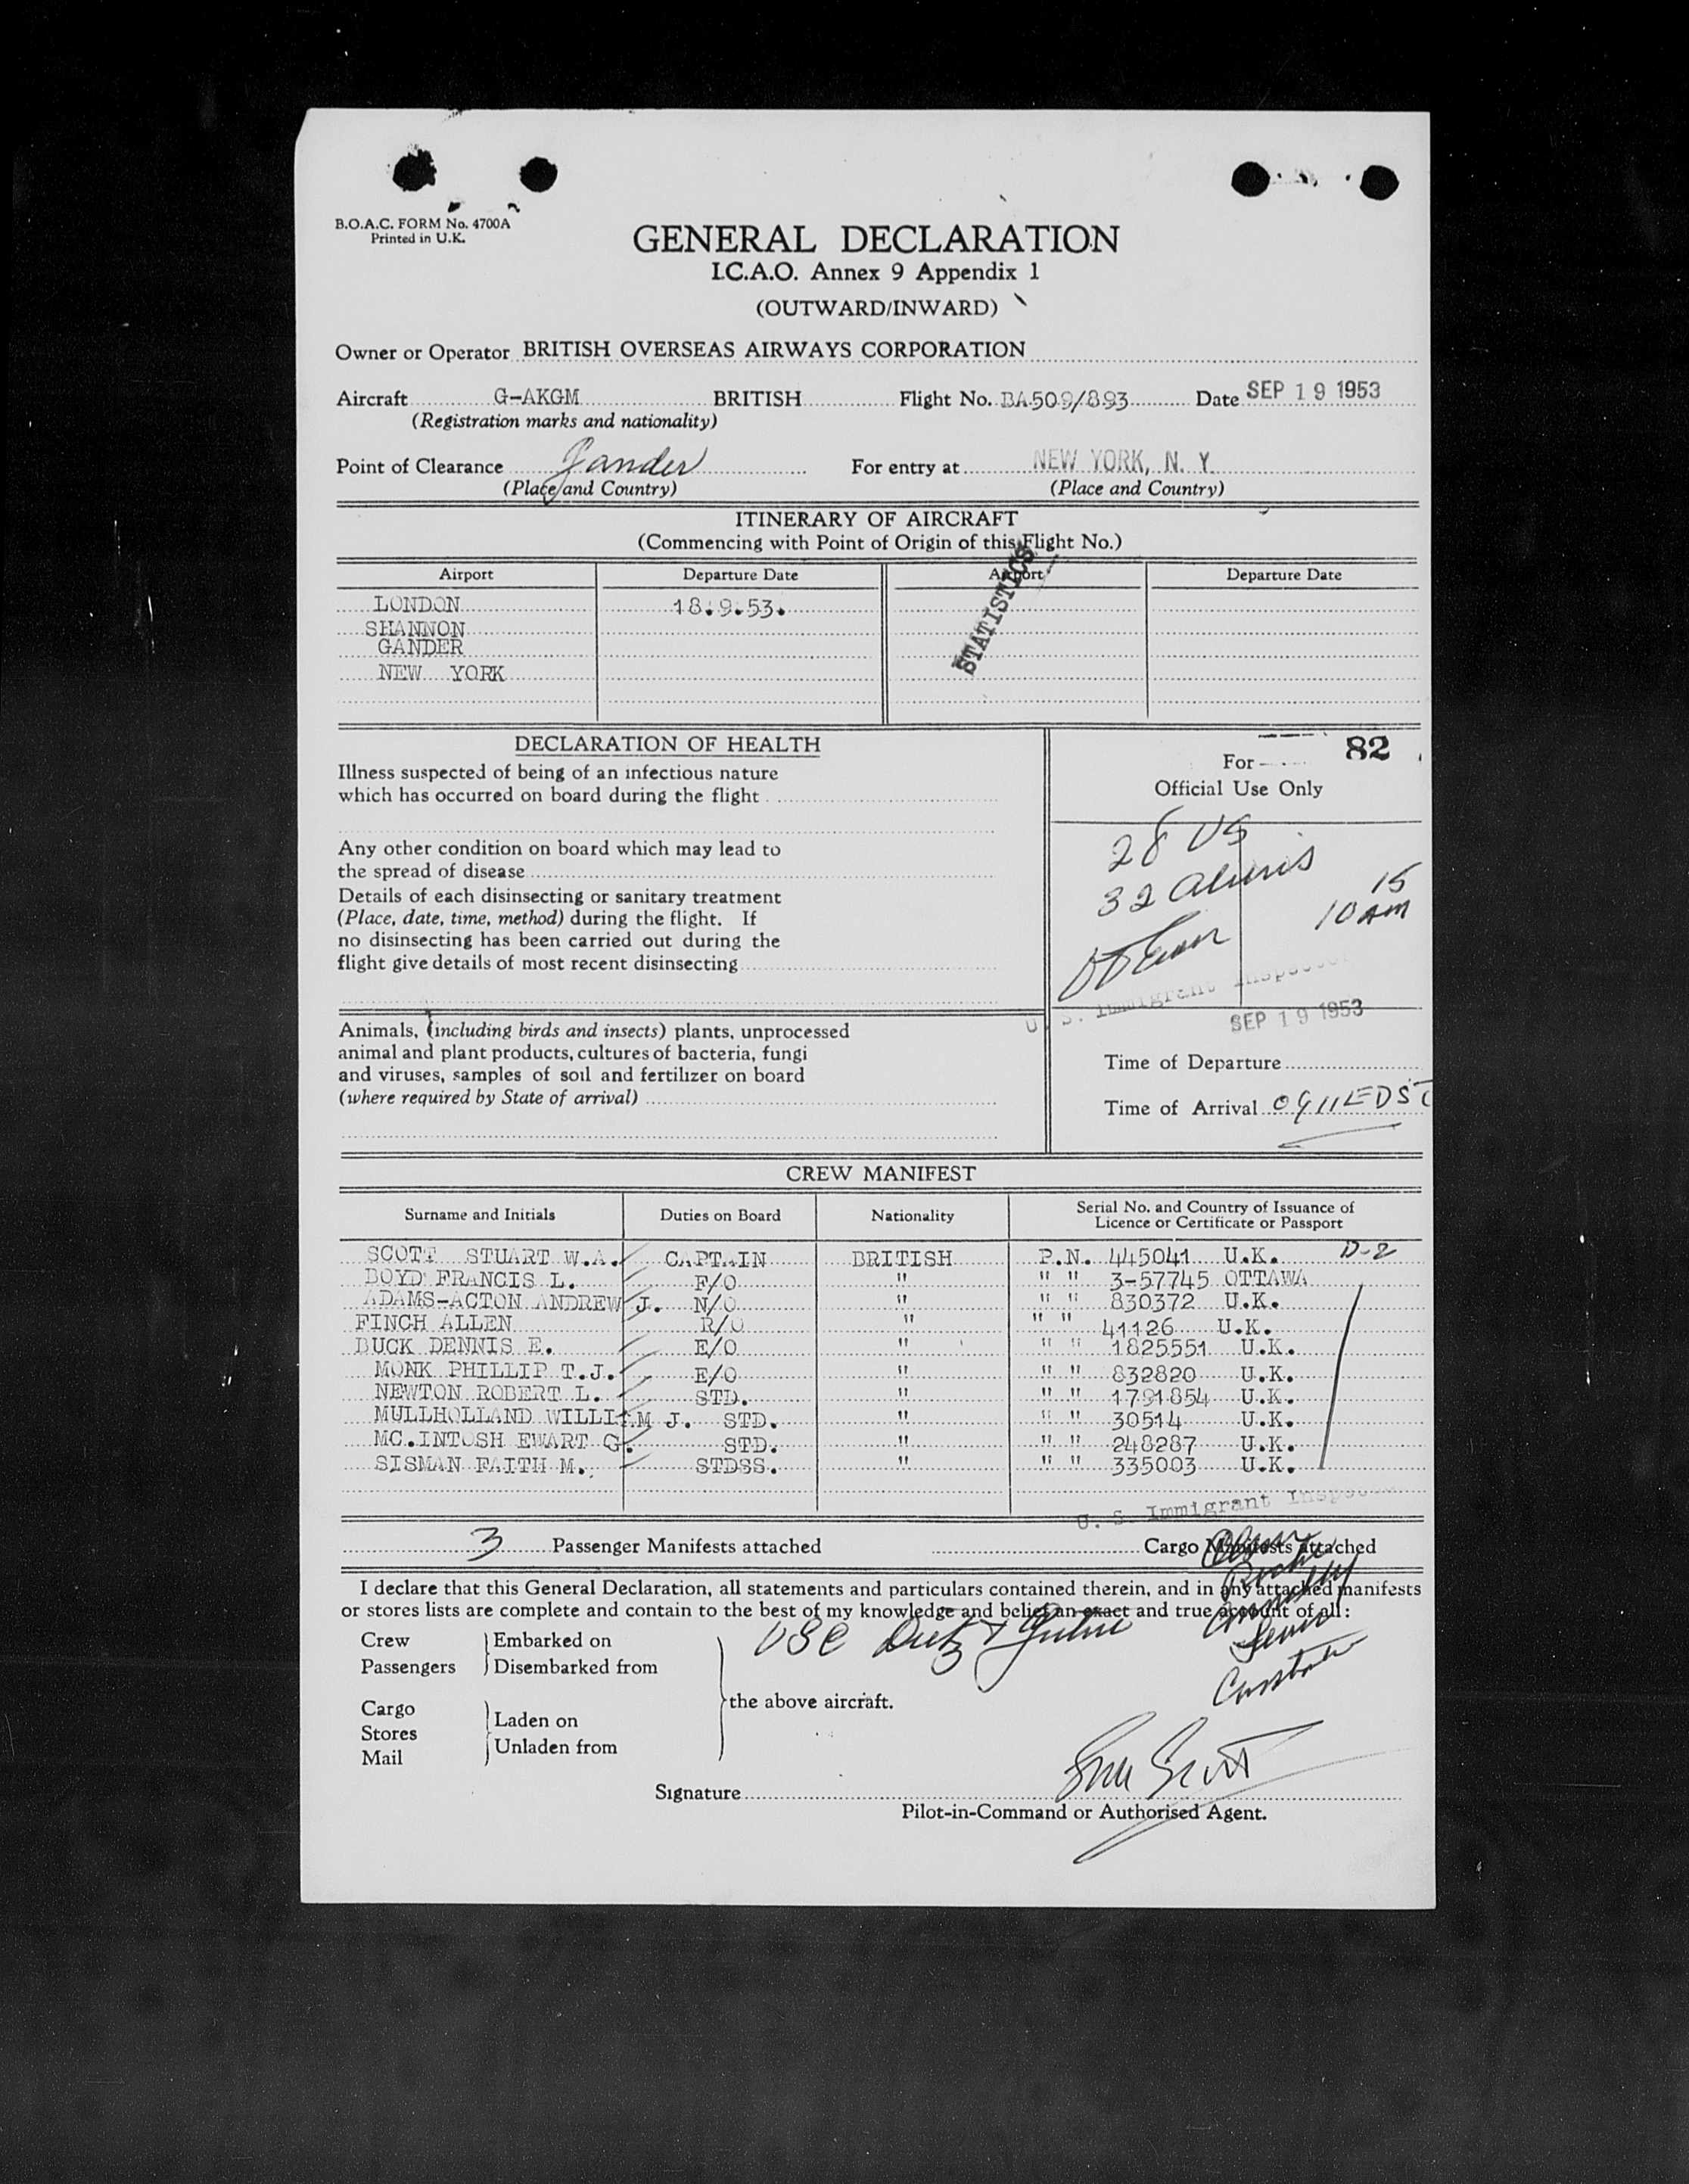 B.O.A.C. FORM No. 4700A
Printed in U.K.
GENERAL DECLARATION
I.C.A.O. Annex 9 Appendix 1
(OUTWARD/INWARD)
Owner or Operator BRITISH OVERSEAS AIRWAYS CORPORATION
Aircraft G-AKGM BRITISH Flight No. BA509/893 Date SEP 19 1953
(Registration marks and nationality)
Point of Clearance Gander For entry at NEW YORK, N. Y.
(Place and Country) (Place and Country)
ITINERARY OF AIRCRAFT
(Commencing with Point of Origin of this Flight No.)
Airport Departure Date Airport Departure Date
STATISTICS
LONDON 18.9.53.
SHANNON
GANDER
NEW YORK
DECLARATION OF HEALTH
Illness suspected of being of an infectious nature
which has occurred on board during the flight
Any other condition on board which may lead to
the spread of disease
Details of each disinsecting or sanitary treatment
(Place, date, time, method) during the flight. If
no disinsecting has been carried out during the
flight give details of most recent disinsecting
Animals, (including birds and insects) plants, unprocessed
animal and plant products, cultures of bacteria, fungi
and viruses, samples of soil and fertilizer on board
(where required by State of arrival)
82
For
Official Use Only
28 US
32 Aliens
15
10 AM
U. S. Immigrant Inspector
SEP 19 1953
Time of Departure
Time of Arrival 0911 EDST
CREW MANIFEST
Surname and Initials Duties on Board Nationality Serial No. and Country of Issuance of
Licence or Certificate or Passport
SCOTT STUART W.A. CAPTAIN BRITISH P.N. 445041 U.K. D-2
BOYD FRANCIS L. F/O " " " 3-57745 OTTAWA
ADAMS-ACTON ANDREW J. N/O " " " 830372 U.K.
FINCH ALLEN R/O " " " 41126 U.K.
BUCK DENNIS E. E/O " " " 1825551 U.K.
MONK PHILLIP T.J. E/O " " " 832820 U.K.
NEWTON ROBERT L. STD. " " " 1791854 U.K.
MULLHOLLAND WILLIAM J. STD. " " " 30514 U.K.
MC.INTOSH EWART G. STD. " " " 248287 U.K.
SISMAN FAITH M. STDSS. " " " 335003 U.K.
U. S. Immigrant Inspector
3 Passenger Manifests attached Cargo Manifests attached
I declare that this General Declaration, all statements and particulars contained therein, and in any attached manifests
or stores lists are complete and contain to the best of my knowledge and belief an exact and true account of all:
Crew Embarked on
Passengers Disembarked from
the above aircraft.
Cargo
Stores Laden on
Mail Unladen from
Signature
Pilot-in-Command or Authorised Agent.